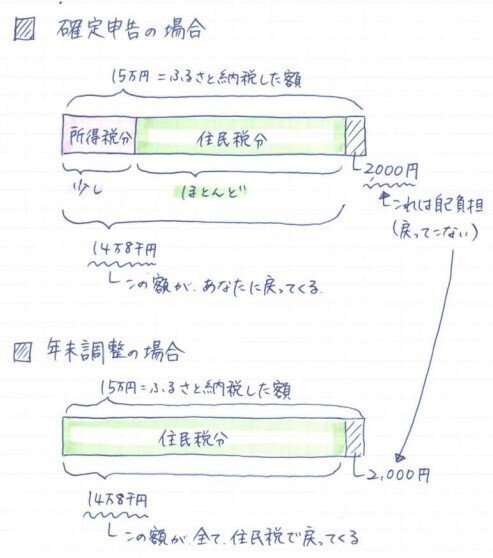 確定申告の場合
15万円=ふるさと納税した額
所得税分 住民税分
少し ほとんど 2000円
これは自己負担
(戻ってこない)
14万8千円
この額が、あなたに戻ってくる
年末調整の場合
15万円=ふるさと納税した額
住民税分
2,000円
14万8千円
この額が、全て、住民税で戻ってくる